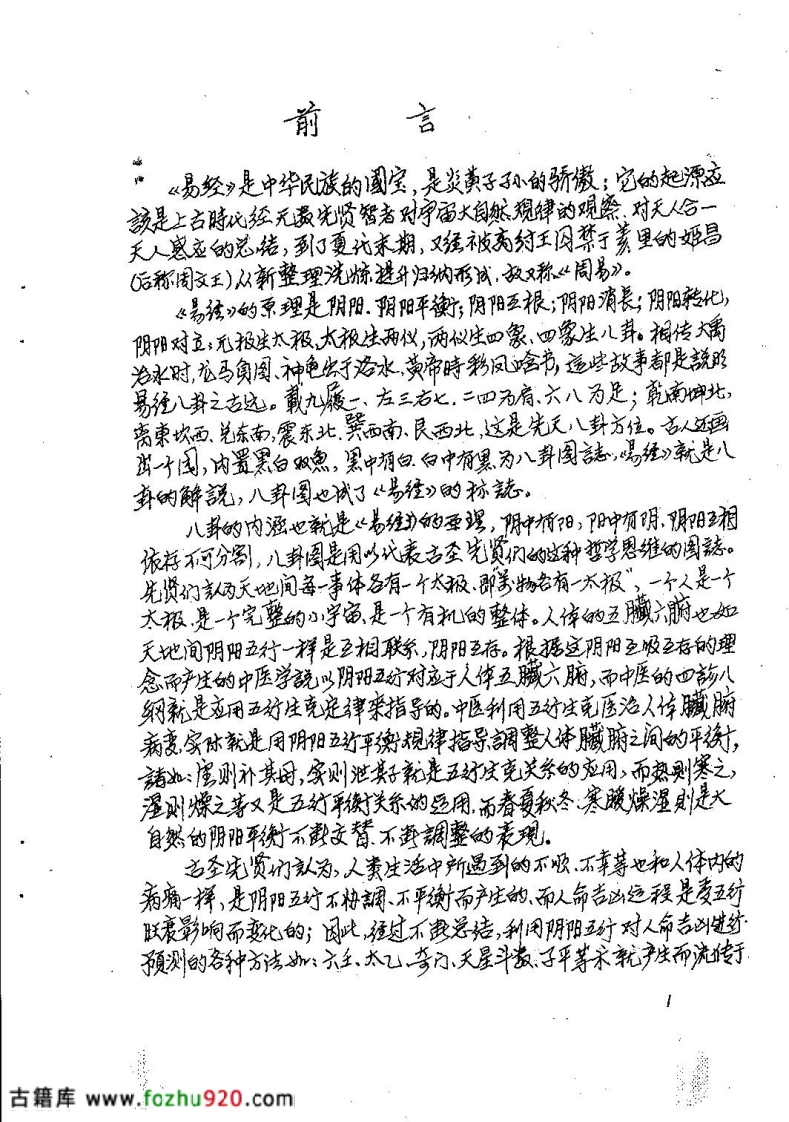 前言
《易经》是中华民族的國宝，是炎黄子孙的骄傲；它的起源应
該是上古時代经无数先贤智者对宇宙大自然规律的观察、对天人合一
天人感应的总结，到了夏代末期，又经被商纣王囚禁于羑里的姬昌
（后称周文王）从新整理洗炼提升归纳形成，故又称《周易》。
《易经》的原理是阴阳．阴阳平衡；阴阳互根；阴阳消長；阴阳转化，
阴阳对立；无极生太极、太极生两仪，两仪生四象、四象生八卦。相传大禹
治水时，龙马负图、神龟出于洛水、黄帝時彩凤啣书，這些故事都是説明
易经八卦之古远。戴九履一、左三右七．二四为肩、六八为足；乾南坤北，
离東坎西、兑东南，震东北、巽西南、艮西北，这是先天八卦方位。古人还画
出一个图，内置黑白双魚，黑中有白．白中有黑为八卦图誌，《易经》就是八
卦的解説，八卦图也成了《易经》的标誌。
八卦的内涵也就是《易经》的原理，阴中有阳，阳中有阴．阴阳互相
依存不可分割，八卦图是用以代表古圣先贤们的这种哲学思维的图誌。
先贤们认为天地间每一事体各有一个太极．即“万物各有一太极”，一个人是一个
太极．是一个完整的小宇宙、是一个有机的整体。人体的五臓六腑也如
天地间阴阳五行一样是互相联系，阴阳互存。根据这阴阳互吸互存的理
念而产生的中医学説以阴阳五行对应于人体五臓六腑，而中医的四診八
纲就是应用五行生克定律来指导的。中医利用五行生克医治人体臓腑
病变．实际就是用阴阳五行平衡规律指导調整人体臓腑之间的平衡，
諸如：虚则补其母，实则泄其子就是五行生克关系的应用，而热则寒之，
湿则燥之等又是五行平衡关系的运用．而春夏秋冬、寒暖燥湿则是大
自然的阴阳平衡不断交替、不断調整的表现。
古圣先贤们认为，人类生活中所遇到的不顺、不幸等也和人体内的
病痛一样，是阴阳五行不协調、不平衡而产生的、而人命吉凶运程是受五行
旺衰影响而变化的；因此，经过不断总结，利用阴阳五行对人命吉凶進行
預测的各种方法如：六壬、太乙、奇门、天星斗数、子平等术就产生而流传于
1
古籍库 www.fozhu920.com